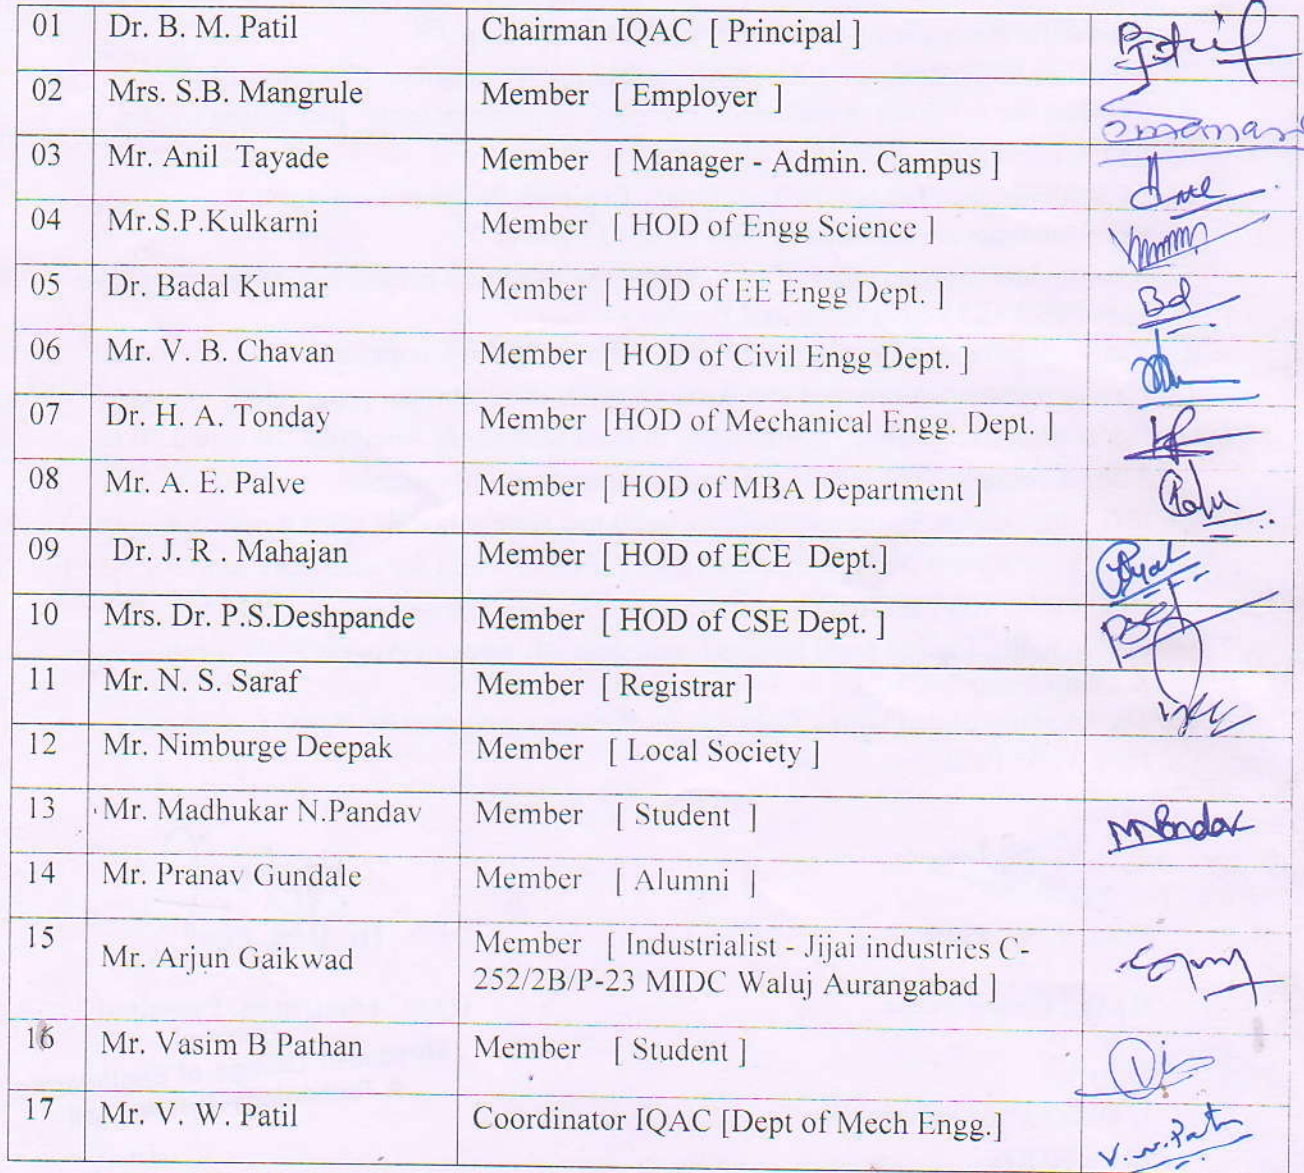 01 Dr. B. M. Patil Chairman IQAC [ Principal ]
02 Mrs. S.B. Mangrule Member [ Employer ]
03 Mr. Anil Tayade Member [ Manager - Admin. Campus ]
04 Mr.S.P.Kulkarni Member [ HOD of Engg Science ]
05 Dr. Badal Kumar Member [ HOD of EE Engg Dept. ]
06 Mr. V. B. Chavan Member [ HOD of Civil Engg Dept. ]
07 Dr. H. A. Tonday Member [HOD of Mechanical Engg. Dept. ]
08 Mr. A. E. Palve Member [ HOD of MBA Department ]
09 Dr. J. R . Mahajan Member [ HOD of ECE Dept.]
10 Mrs. Dr. P.S.Deshpande Member [ HOD of CSE Dept. ]
11 Mr. N. S. Saraf Member [ Registrar ]
12 Mr. Nimburge Deepak Member [ Local Society ]
13 Mr. Madhukar N.Pandav Member [ Student ]
14 Mr. Pranav Gundale Member [ Alumni ]
15 Mr. Arjun Gaikwad Member [ Industrialist - Jijai industries C-
252/2B/P-23 MIDC Waluj Aurangabad ]
16 Mr. Vasim B Pathan Member [ Student ]
17 Mr. V. W. Patil Coordinator IQAC [Dept of Mech Engg.]